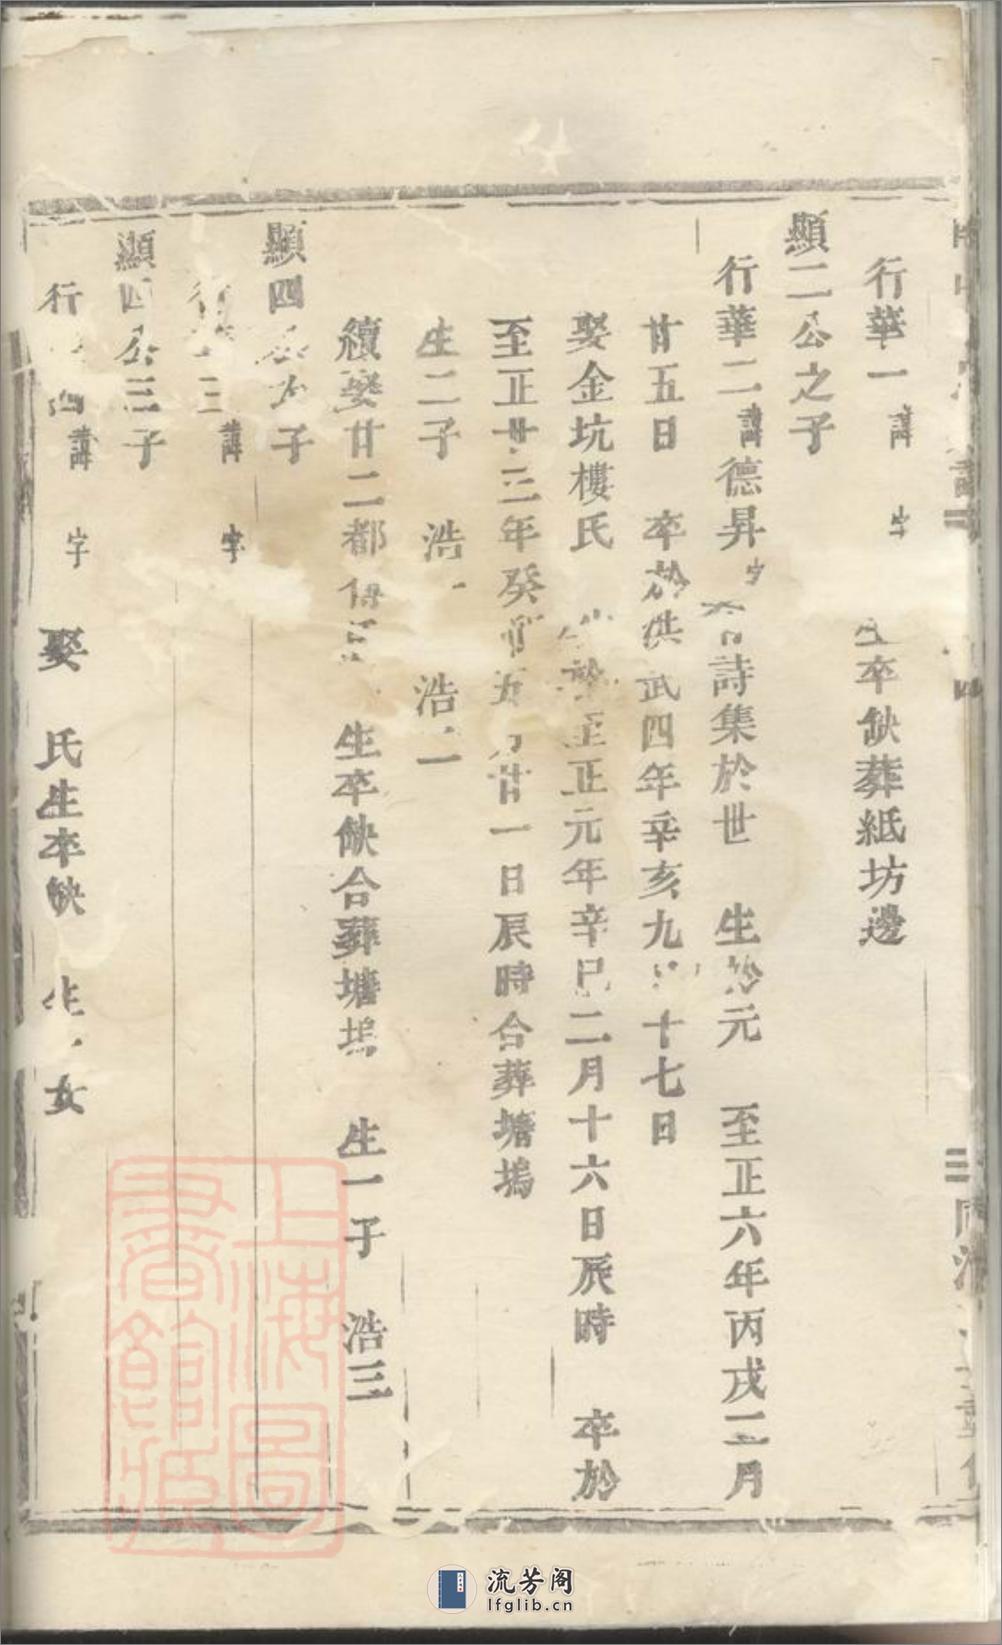 行華一諱 字 生卒缺葬紙坊邊
顯二公之子
行華二諱德昇字 有詩集於世 生於元 至正六年丙戌三月
廿五日 卒於洪武四年辛亥九月十七日
娶金坑樓氏 於至正元年辛巳二月十六日辰時 卒於
至正廿三年癸卯五月廿一日辰時合葬塘塢
生二子 浩一 浩二
續娶廿二都傅氏 生卒缺合葬塘塢 生一子 浩三
顯四公 子
三諱 字
顯四公三子
行 四諱 字 娶 氏生卒缺 生一女
上海圖書館藏
流芳阁
lfglib.cn